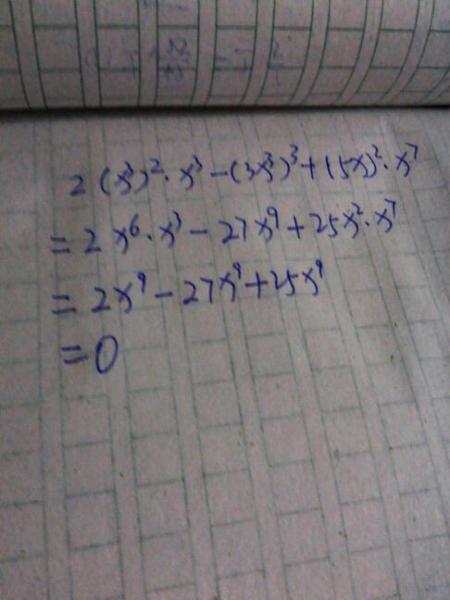 2(x³)²·x³-(3x³)³+(5x)²·x⁷
=2x⁶·x³-27x⁹+25x²·x⁷
=2x⁹-27x⁹+25x⁹
=0